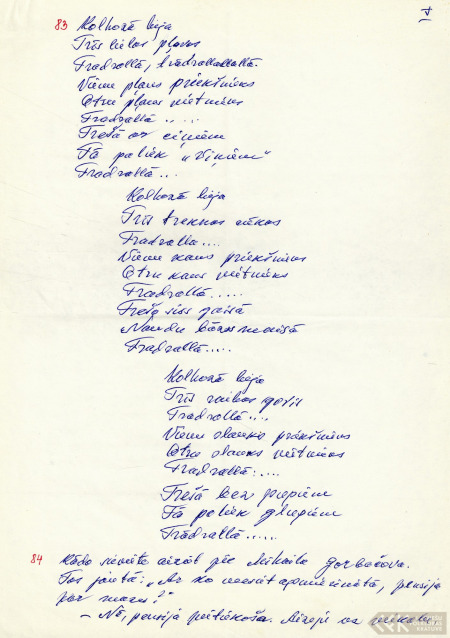 I
83 Kolhozā bija
Trīs lielas pļavas
Tradrallā, tradrallallallā.
Vienu pļauj priekšnieks
Otru pļauj vietnieks
Tradrallā .....
Trešā ar ciņiem
Tā paliek „Viņiem"
Tradrallā...
Kolhozā bija
Trīs treknas cūkas
Tradralla....
Vienu kauj priekšnieks
Otru kauj vietnieks
Tradrallā.....
Trešo
Naudu
Tradrallā.....
Kolhozā bija
Trīs raibas govis
Tradrallā...
Vienu slauc priekšnieks
Otru slauc vietnieks
Tradrallā.....
Trešā bez pupiem
Tā paliek glupiem
Trādrallā......
84 Kāda sieviete aiziet pie Mihaila Gorbačova.
Tas jautā: „Ar ko neesat apmierināta, pensija
par mazu?"
– Nē, pensija pietiekoša. Aizeju uz veikalu,